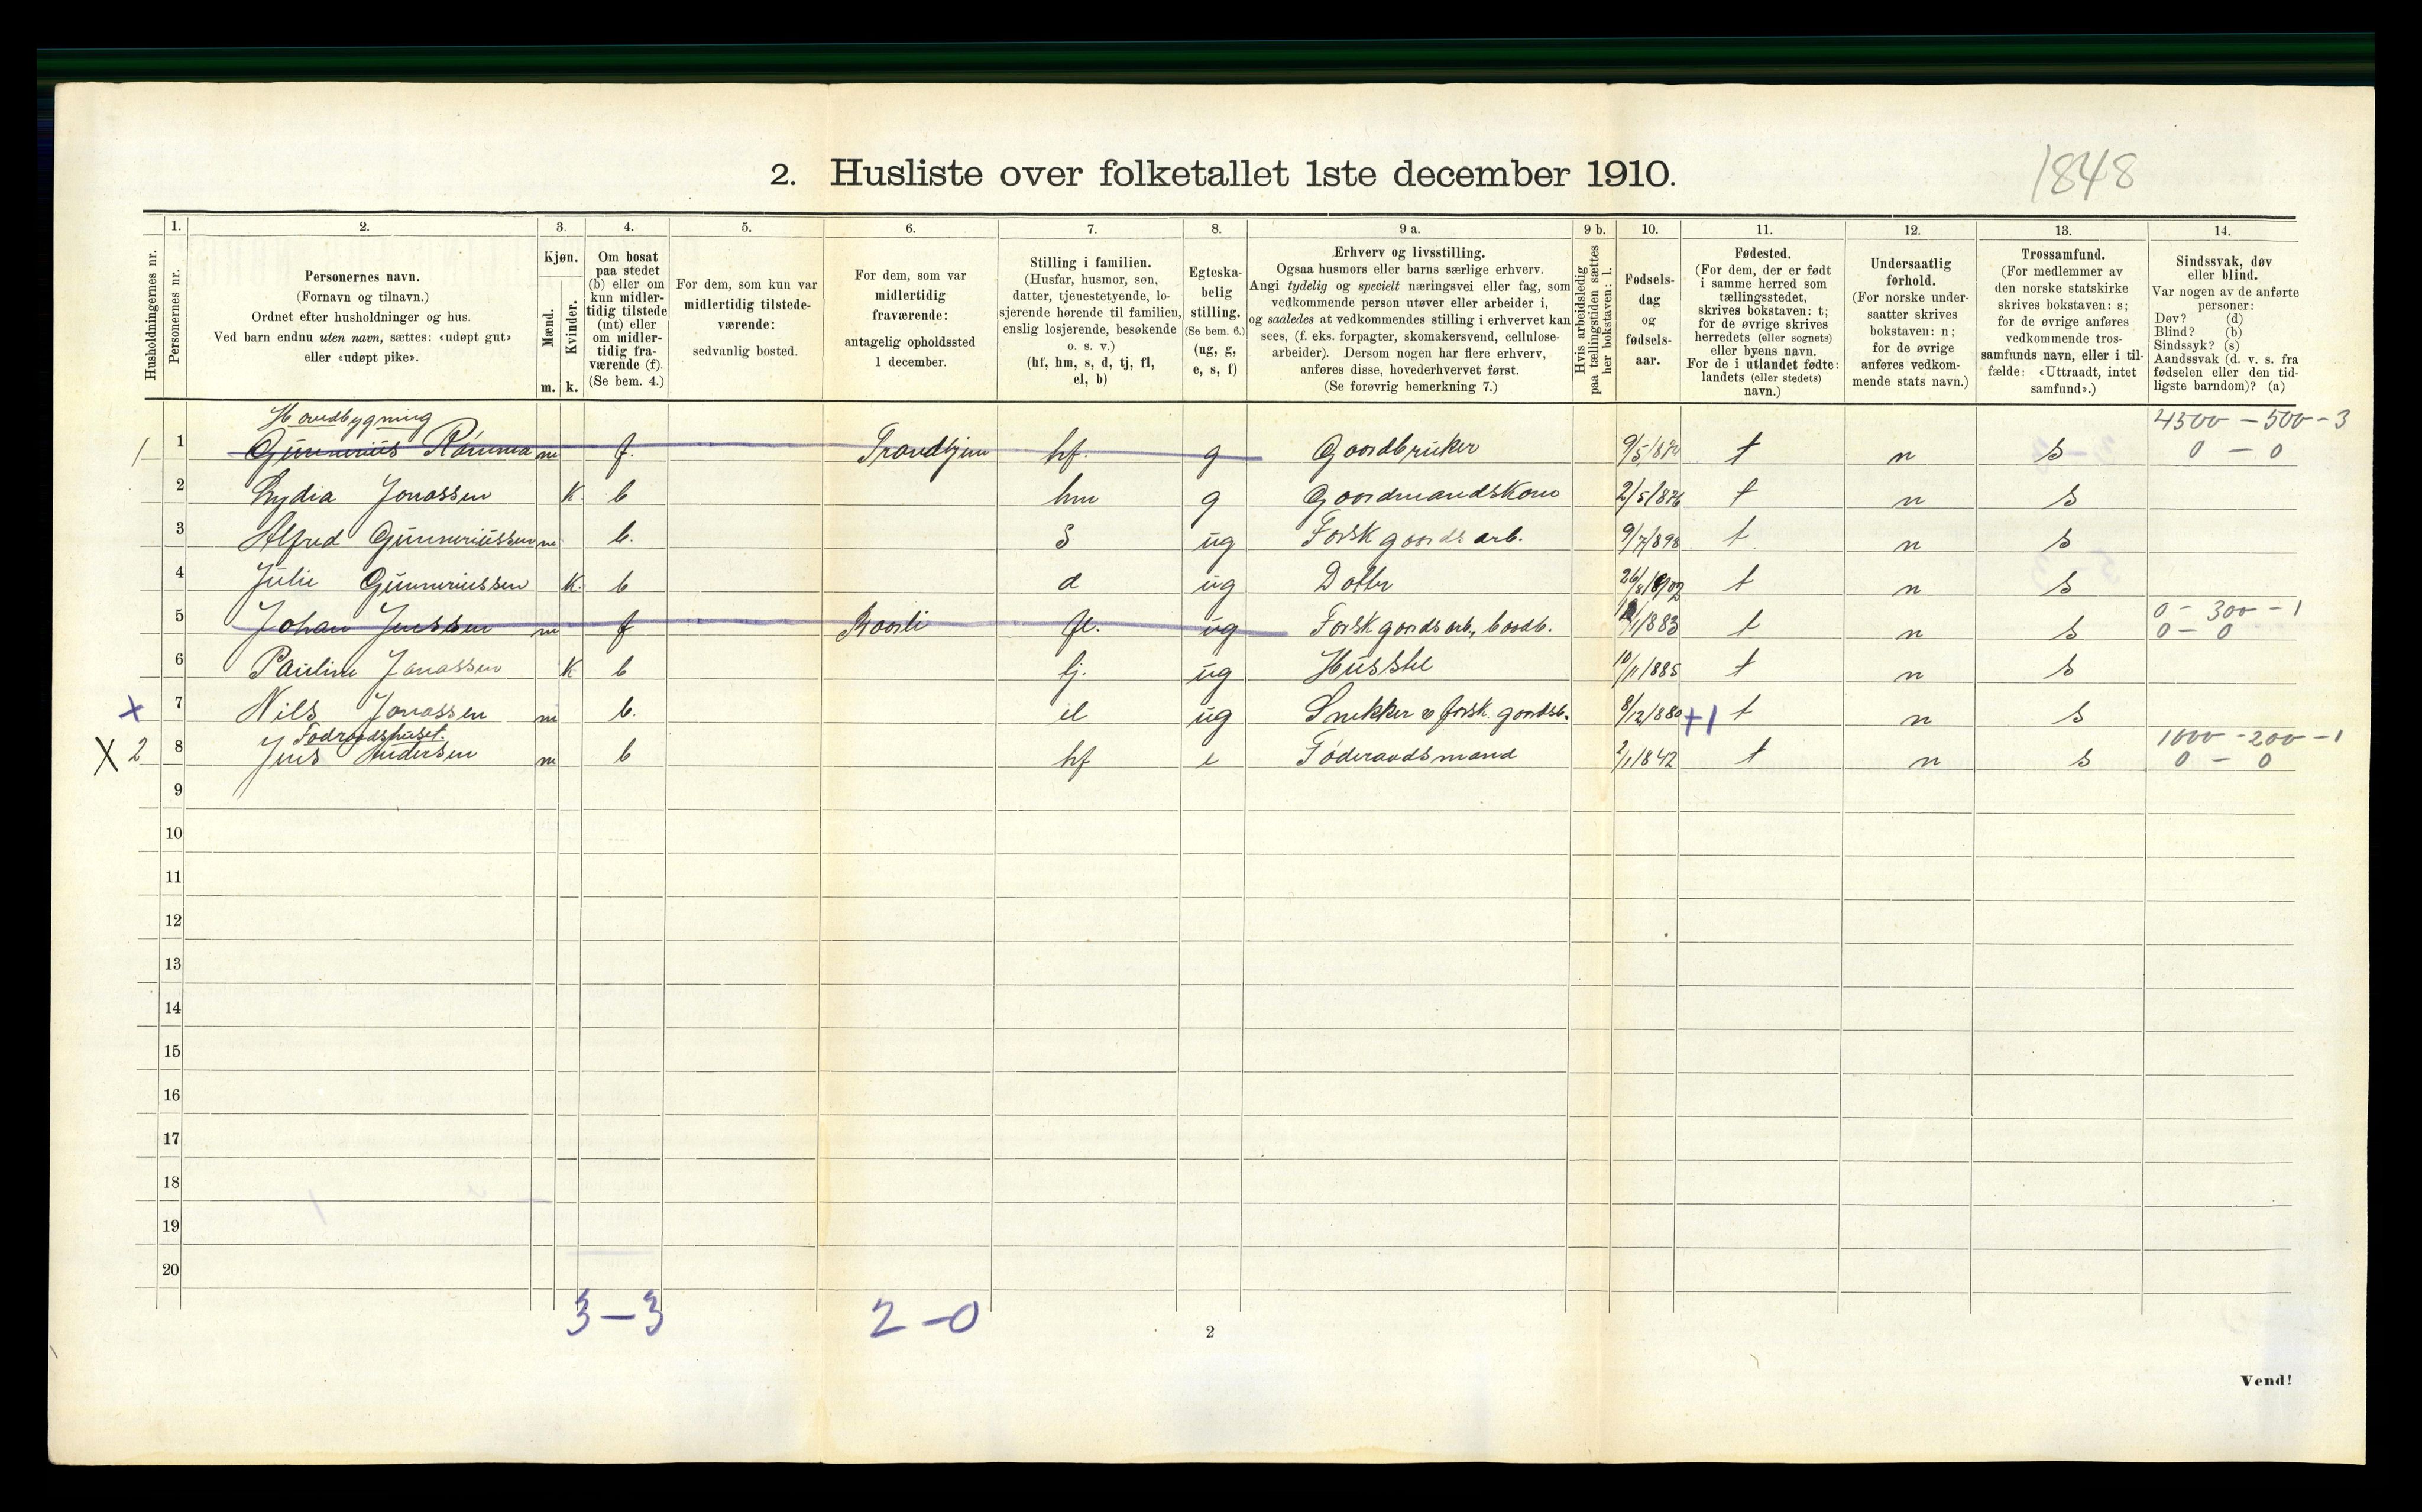 1848
2. Husliste over folketallet 1ste december 1910.
1. 2. 3. 4. 5. 6. 7. 8. 9 a. 9 b. 10. 11. 12. 13. 14.
Husholdningernes nr.
Personernes nr.
Personernes navn.
(Fornavn og tilnavn.)
Ordnet efter husholdninger og hus.
Ved barn endnu uten navn, sættes: «udøpt gut»
eller «udøpt pike».
Kjøn.
Mænd.
Kvinder.
m. k.
Om bosat
paa stedet
(b) eller om
kun midler-
tidig tilstede
(mt) eller
om midler-
tidig fra-
værende (f).
(Se bem. 4.)
For dem, som kun var
midlertidig tilstede-
værende:
sedvanlig bosted.
For dem, som var
midlertidig
fraværende:
antagelig opholdssted
1 december.
Stilling i familien.
(Husfar, husmor, søn,
datter, tjenestetyende, lo-
sjerende hørende til familien,
enslig losjerende, besøkende
o. s. v.)
(hf, hm, s, d, tj, fl,
el, b)
Egteska-
belig
stilling.
(Se bem. 6.)
(ug, g,
e, s, f)
Erhverv og livsstilling.
Ogsaa husmors eller barns særlige erhverv.
Angi tydelig og specielt næringsvei eller fag, som
vedkommende person utøver eller arbeider i,
og saaledes at vedkommendes stilling i erhvervet kan
sees, (f. eks. forpagter, skomakersvend, cellulose-
arbeider). Dersom nogen har flere erhverv,
anføres disse, hovederhvervet først.
(Se forøvrig bemerkning 7.)
Hvis arbeidsledig
paa tællingstiden sættes
her bokstaven: l.
Fødsels-
dag
og
fødsels-
aar.
Fødested.
(For dem, der er født
i samme herred som
tællingsstedet,
skrives bokstaven: t;
for de øvrige skrives
herredets (eller sognets)
eller byens navn.
For de i utlandet fødte:
landets (eller stedets)
navn.)
Undersaatlig
forhold.
(For norske under-
saatter skrives
bokstaven: n;
for de øvrige
anføres vedkom-
mende stats navn.)
Trossamfund.
(For medlemmer av
den norske statskirke
skrives bokstaven: s;
for de øvrige anføres
vedkommende tros-
samfunds navn, eller i til-
fælde: «Uttraadt, intet
samfund».)
Sindssvak, døv
eller blind.
Var nogen av de anførte
personer:
Døv? (d)
Blind? (b)
Sindssyk? (s)
Aandssvak (d. v. s. fra
fødselen eller den tid-
ligste barndom)? (a)
Hovedbygning 4500 - 500 - 3
1 1 m f. hf. g Gaardbruker t n s 0 - 0
2 Lydia Jonassen k b hm g 2/5 1876 t n s
3 Alfred Gunneriussen m b. s ug Forsk gaards arb. 9/7 1898 t n s
4 Julie Gunneriussen k. b d ug Datter t n s
0 - 300 - 1
5 Johan Jenssen m f fl. ug Forsk gaards arb., baadb. t n s 0 - 0
6 Pauline Jonassen k b tj. ug Husstel t n s
x 7 Nils Jonassen m b. el ug Snekker & forsk. gaardsb. 8/12 1880 +1 t n s
Fødraadshuset. 1000 - 200 - 1
X 2 8 Jens Andersen m b hf e Føderaadsmand 2/1 1842 t n s 0 - 0
9
10
11
12
13
14
15
16
17
18
19
20
3-3 2-0
2
Vend!